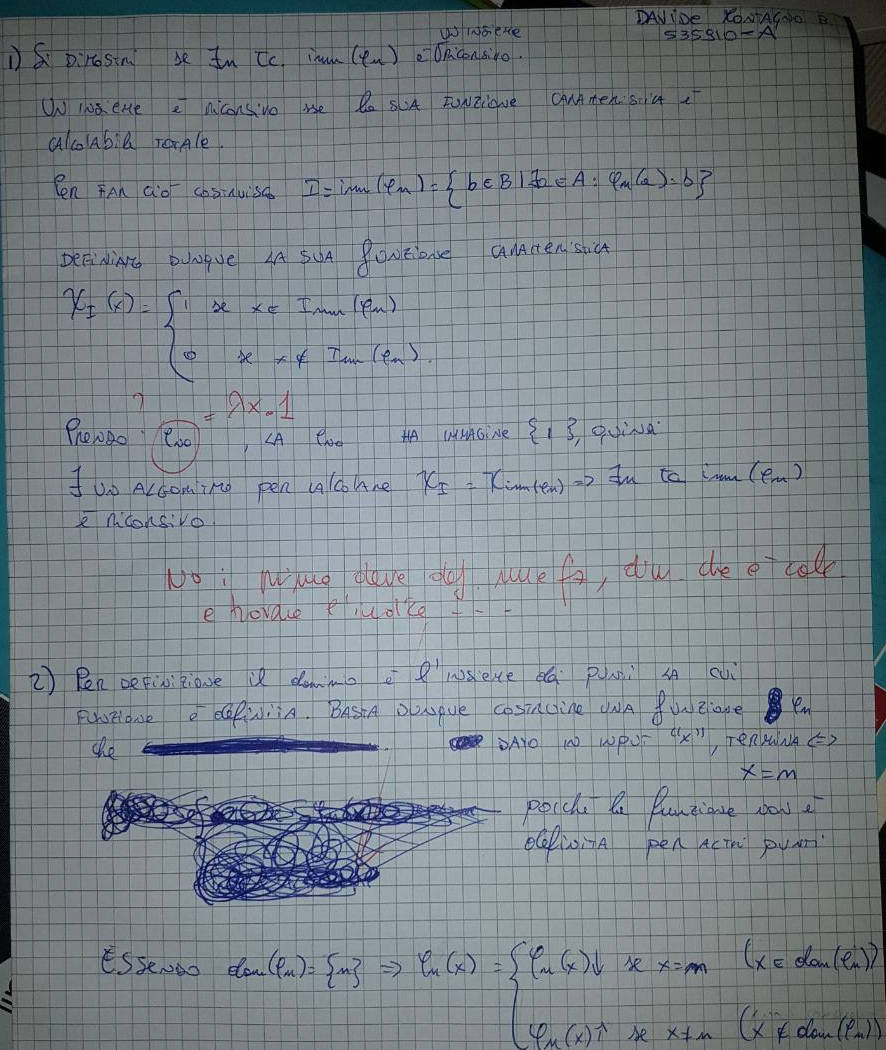 DAVIDE MONTAGNO B.
535910-A
1) Si DIMOSTRI se ∃n tc. imm(φn) è UN INSIEME RICORSIVO.
UN INSIEME è RICORSIVO sse la SUA FUNZIONE CARATTERISTICA è
CALCOLABILE TOTALE.
PER FAR CIÒ COSTRUISCO I = imm(φn) = { b ∈ B | ∃a ∈ A : φn(a) = b }
DEFINIAMO DUNQUE LA SUA FUNZIONE CARATTERISTICA
χI(x) = { 1 se x ∈ Imm(φn)
0 se x ∉ Imm(φn).
? = λx.1
PRENDO φ100, LA φ100 HA IMMAGINE {1}, QUINDI
∃ UN ALGORITMO PER CALCOLARE χI = χimm(φn) => ∃n tc imm(φn)
è RICORSIVO.
No ; primo deve def. una fz, dim. che è calc.
e trovare l'indice - - -
2) PER DEFINIZIONE il dominio è l'INSIEME dei PUNTI LA CUI
FUNZIONE è DEFINITA. BASTA DUNQUE COSTRUIRE UNA FUNZIONE φn
che DATO IN INPUT "x", TERMINA <=>
x = n
poiché la funzione non è
DEFINITA PER ALTRI PUNTI
ESSENDO dom(φn) = {n} => φn(x) = { φn(x)↓ se x = n (x ∈ dom(φn))
φn(x)↑ se x ≠ n (x ∉ dom(φn))